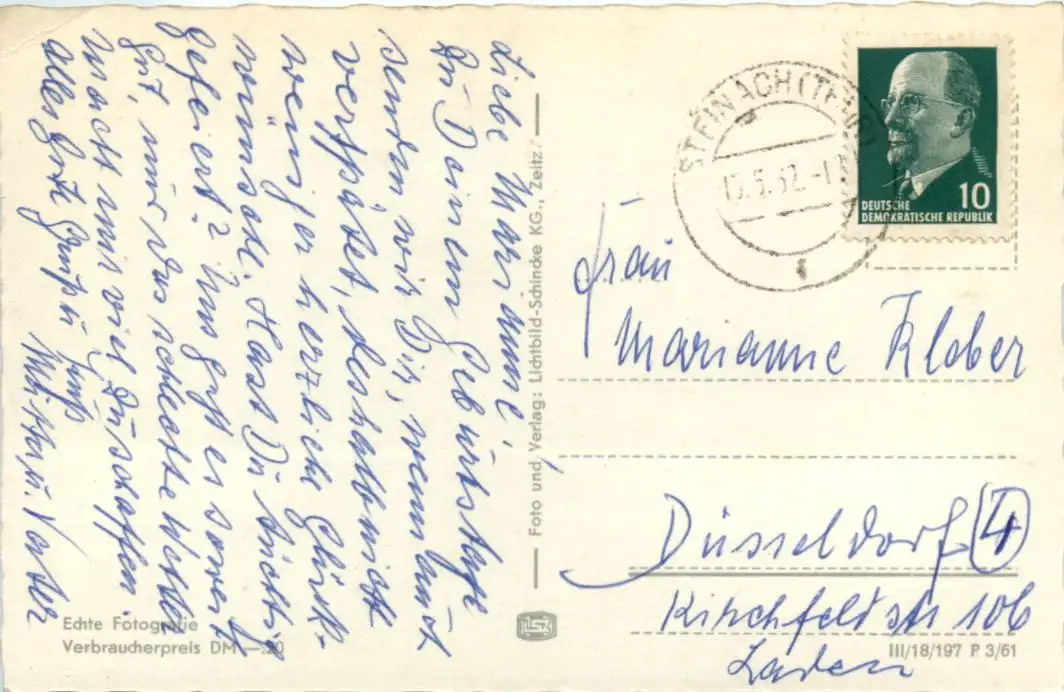 Liebe Marianne,
Zu Deinem Geburtstage
senden wir Dir, wenn auch
verspätet, deshalb nicht
wenig er herzliche Glück-
wünsche. Hast Du tüchtig
gefeiert? Uns geht es soweit
gut, nur das schlechte Wetter
macht uns viel zu schaffen.
Alles Gute Gruß u Kuß
Mutti u. Vater
Foto und Verlag: Lichtbild-Schincke KG., Zeitz
Echte Fotografie
Verbraucherpreis DM —.20
STEINACH (THÜR)
DEUTSCHE
DEMOKRATISCHE REPUBLIK
10
Frau
Marianne Klober
Düsseldorf
Kirchfeldstr 106
Laden
III/18/197 P 3/61